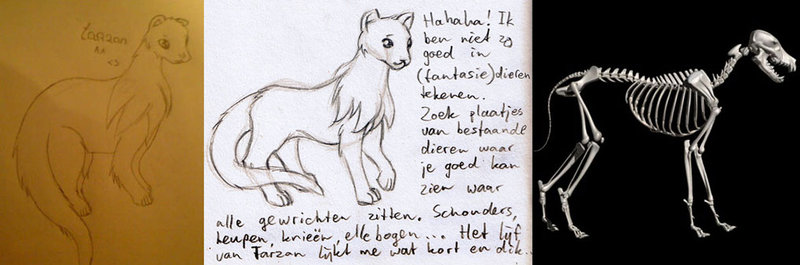 Tarzan
^^
<3
Hahaha! Ik
ben niet zo
goed in
(fantasie)dieren
tekenen.
Zoek plaatjes
van bestaande
dieren waar
je goed kan
zien waar
alle gewrichten zitten. Schouders,
heupen, knieën, ellebogen... Het lijf
van Tarzan lijkt me wat kort en dik..